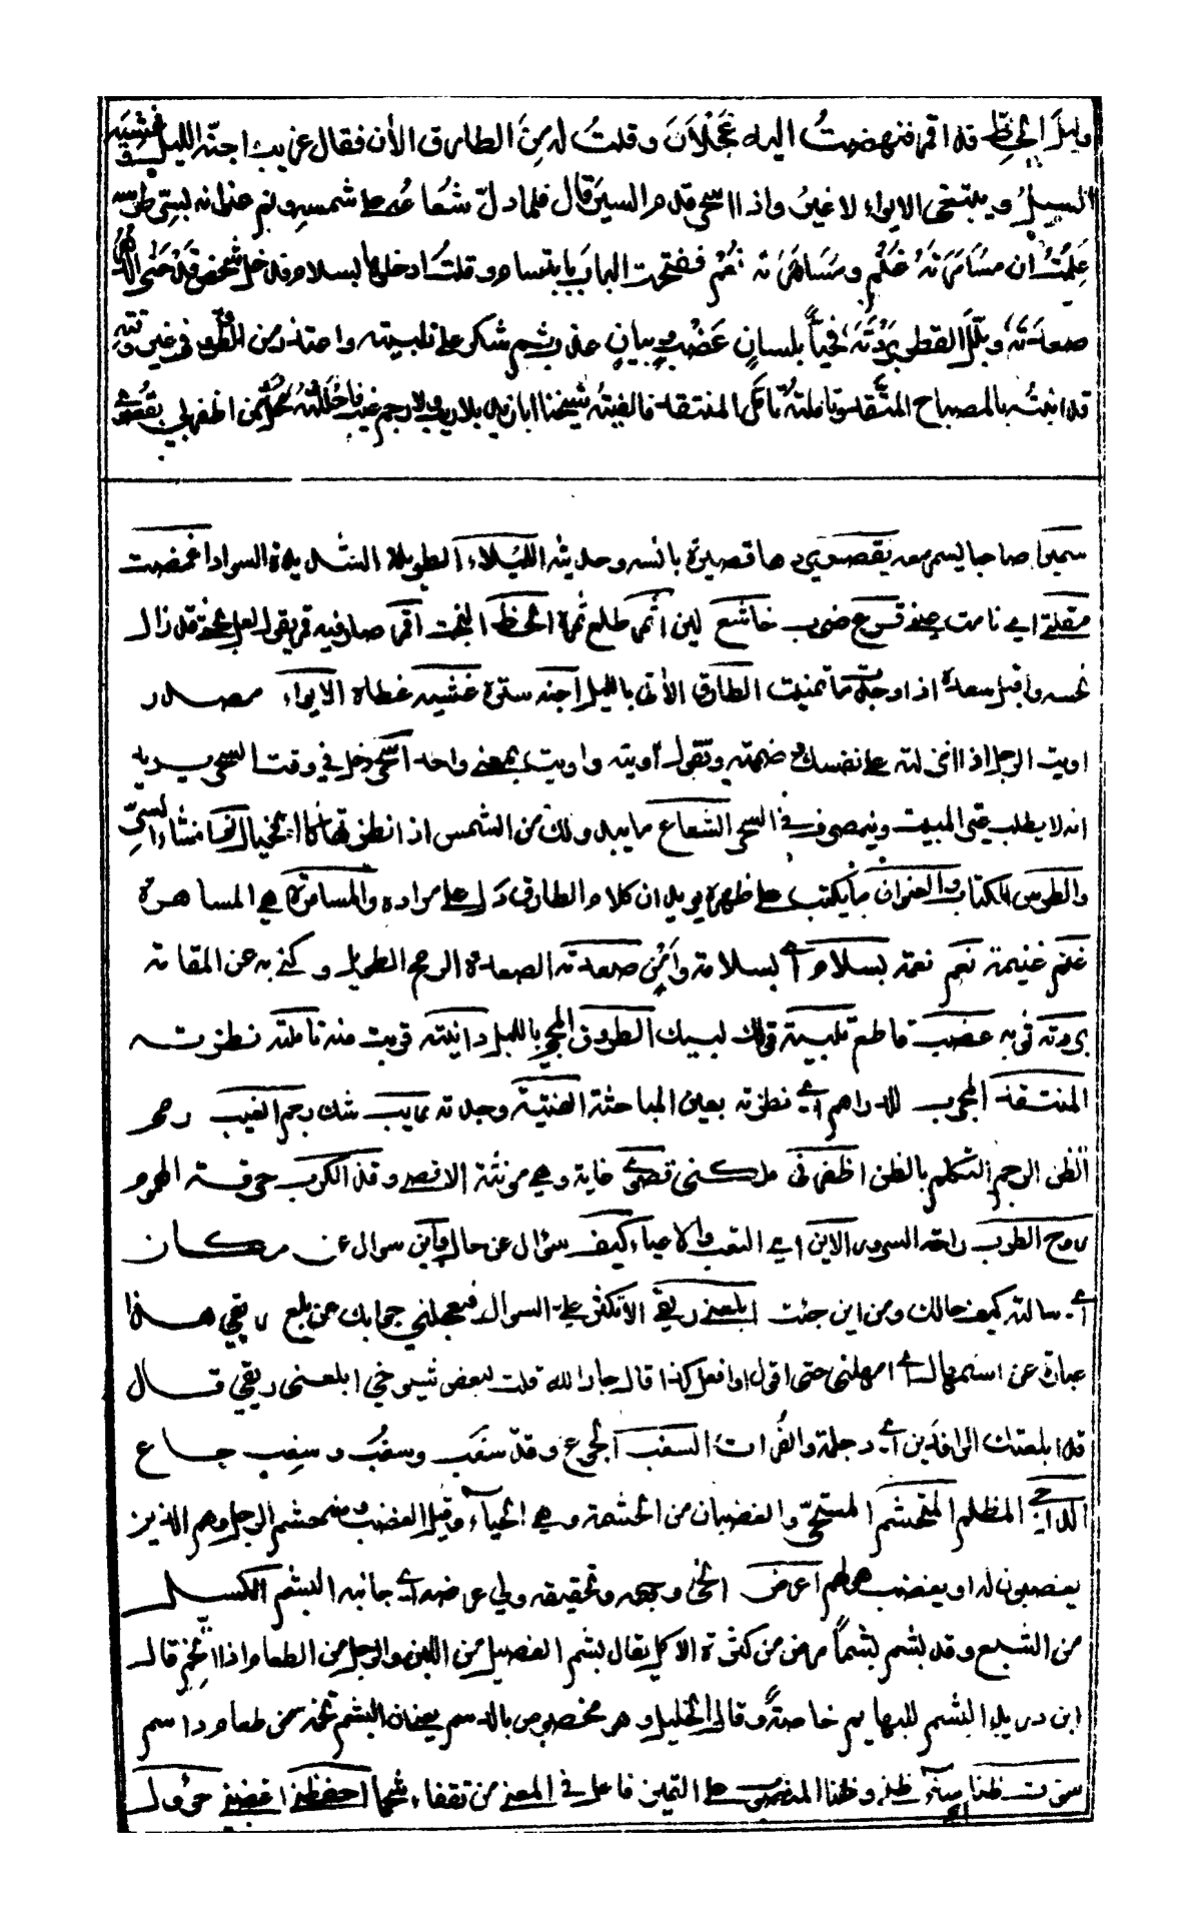 وليل الحظ قد اقمر فنهضت اليه عجلان وقلت له من الطارق الأن فقال غريب اجنه الليل وغشيه
السيل ويبتغي الايواء لا غير واذا اسحر قدم السير قال فلما دل شعاعه على شمسه ونم عنوانه بسر طرسه
علمت ان مسامرته غنم ومساهرته نعم ففتحت الباب بابتسام وقلت ادخلوها بسلام فدخل شخص قد حنى الدهر
صعدته وبلل القطر بردته فحيا بلسان عضب وبيان عذب ثم شكر على تلبيته واعتذر من الطروق في غير وقته
فدانيته بالمصباح المتقد وتاملته تامل المنتقد فالفيته شيخنا ابا زيد بلا ريب ولا رجم غيب فاحللته محل من اظفرني بقصوى
سميرا صاحبا يسمر معه يقصر يردها قصيرة بانسه وحديثه الليلاء الطويلة الشديدة السواد اغمضت
مقلتي اي نامت عيني قرع ضرب خاشع لين اثمر طلع ثمرة الحظ البخت اقمر صار فيه قمر يقول لعل نحسه قد زال
نحسه واقبل سعده اذا وجد ما تمنيت الطارق الأتي بالليل اجنه ستره غشيه غطاه الايواء مصدر
اويت الرجل اذا انزلته على نفسك وضممته وتقول أويته واويت بمعنى واحد اسحر دخل في وقت السحر يريد به
انه لا يطلب غير المبيت وينصرف في السحر الشعاع ما يبدو لك من الشمس اذا نظرتها كالخيال نم افشاء السر
والطرس الكتاب والعنوان ما يكتب على ظهره يريد ان كلام الطارق دل على مراده والمسامرة هي المساهرة
غنم غنيمة نعم نعمة بسلام اي بسلامة وامن صعدته الصعدة الرمح الطويل وكنى به عن القامة
بردته ثوبه عضب قاطع تلبية قولك لبيك الطروق المجيء بالليل دانيته قربت منه تاملته نظرت
المنتقد المجرب للدراهم اي نظرته بعين المباحثة الفيته وجدته بما ريب شك رجم الغيب رحم
الظن الرجم التكلم بالظن اظفرني ملكني قصوى غاية وهي مونثة الاقصى وقد الكرب حرقة الهموم
روح الطرب راحة السرور الاين اي التعب والاعياء كيف سؤال عن حال واين سوال عن مكان
اي سالته كيف حالك ومن اين جئت ابلعني ريقي الا تكثر علي السوال فيعجلني جوابك عن بلع ريقي هذا
عبارة عن استمهال اي امهلني حتى اقول او افعل كذا قال جار الله قلت لبعض شيوخي ابلعني ريقي قال
قد ابلعتك الرافدين اي دجلة والفرات السغب الجوع وقد سغب وسغب وسغب جاع
الداجي المظلم المحتشم المستحي والغضبان من الحشمة وهي الحياء وقيل الغضب ومنه حشم الرجل وهم الذين
يغضبون له او يغضب لهم اعرض الخى وجهه وتحقيقه ولي عرضه اي جانبه البشم الكسل
من الشبع وقد بشم بشما مرض من كثرة الاكل يقال بشم الفصيل من اللبن والرجل من الطعام اذا اتخم قال
ابن دريد البشم للبهايم خاصة وقال الخليل وهو مخصوص بالدسم يعني ان البشم تخمة من طعام دسم
سؤت ظنا ساء ظني وظنا المنصوب على التمييز فاعل في المعنى من تفقاء شحما احفظني اغضبني حؤول